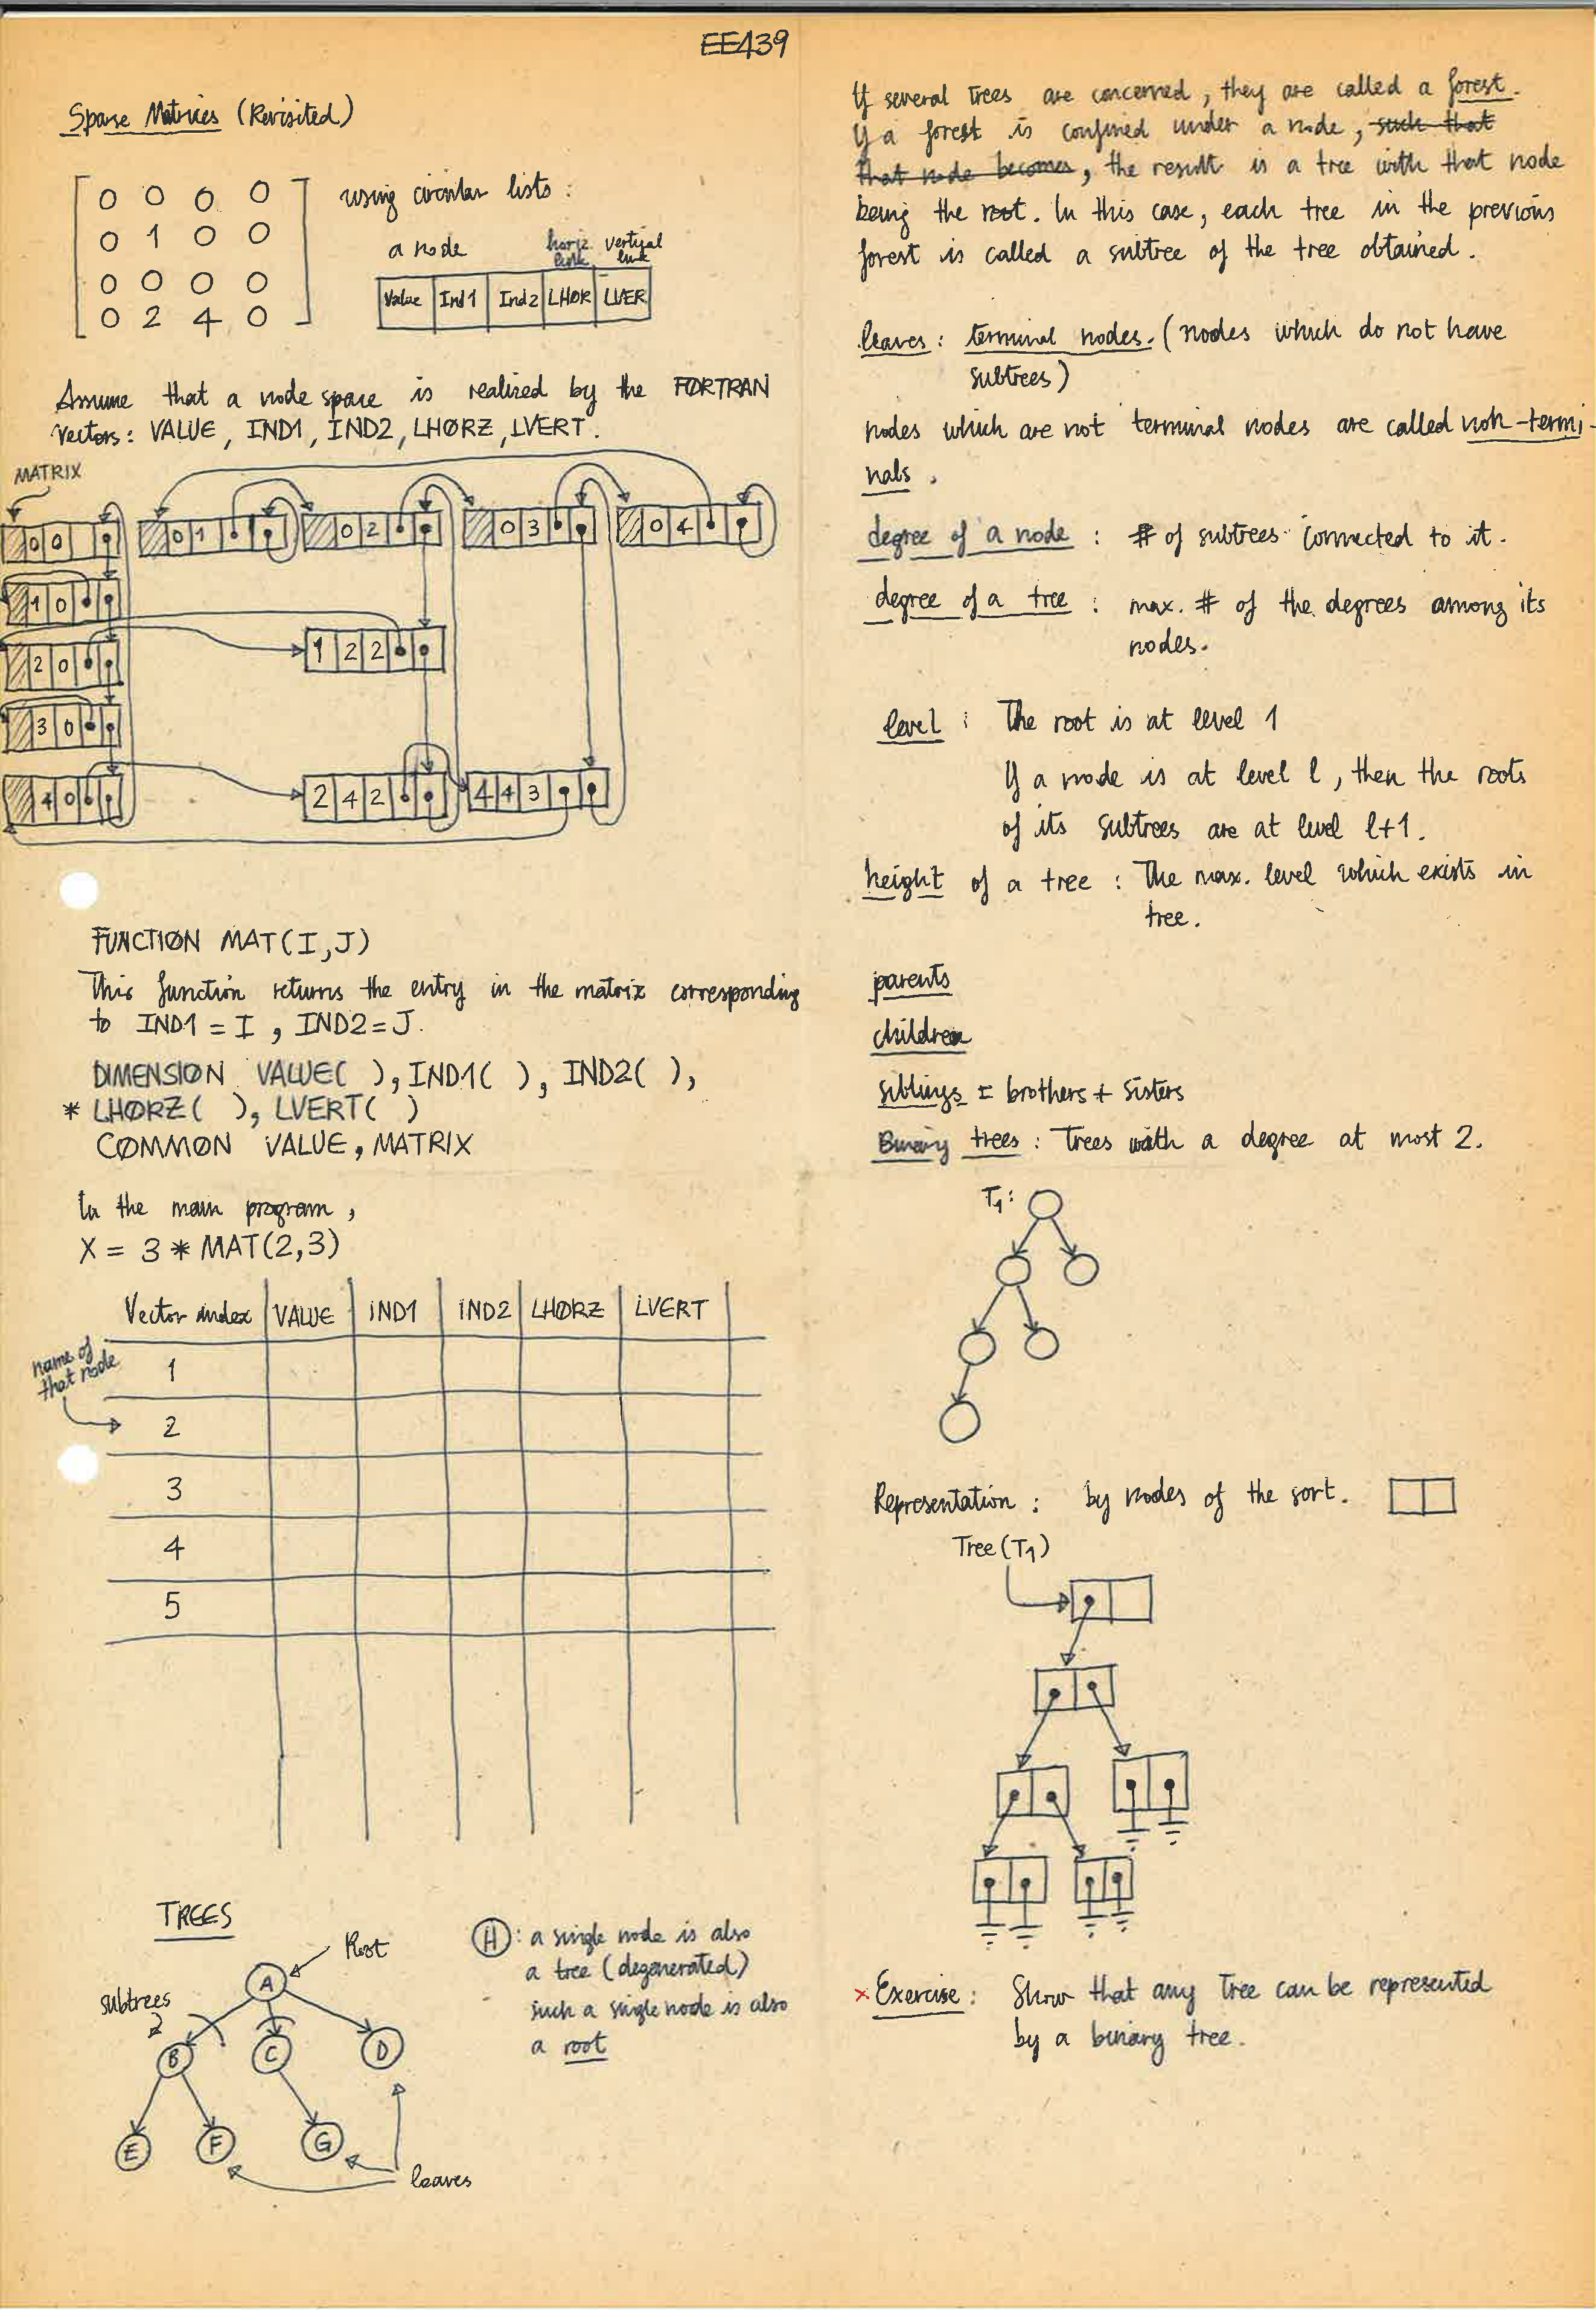 EE439
Sparse Matrices (Revisited)
0 0 0 0
0 1 0 0
0 0 0 0
0 2 4 0
using circular lists :
a node
horiz. link
vertical link
Value Ind1 Ind2 LHOR LVER
Assume that a node space is realized by the FØRTRAN
vectors: VALUE, IND1, IND2, LHØRZ, LVERT.
MATRIX
0 0
0 1
0 2
0 3
0 4
1 0
2 0
1 2 2
3 0
4 0
2 4 2
4 4 3
FUNCTIØN MAT(I,J)
This function returns the entry in the matrix corresponding
to IND1 = I , IND2 = J.
DIMENSIØN VALUE( ), IND1( ), IND2( ),
* LHØRZ( ), LVERT( )
CØMMØN VALUE, MATRIX
In the main program,
X = 3 * MAT(2,3)
Vector index VALUE IND1 IND2 LHØRZ LVERT
name of
that node
1
2
3
4
5
TREES
Root
subtrees
A
B C D
E F G
leaves
H : a single node is also
a tree (degenerated)
such a single node is also
a root
If several trees are concerned, they are called a forest.
If a forest is confined under a node, such that
that node becomes, the result is a tree with that node
being the root. In this case, each tree in the previous
forest is called a subtree of the tree obtained.
leaves : terminal nodes. (nodes which do not have
subtrees)
nodes which are not terminal nodes are called non-termi-
nals.
degree of a node : # of subtrees connected to it.
degree of a tree : max. # of the degrees among its
nodes.
level : The root is at level 1
If a node is at level l, then the roots
of its subtrees are at level l+1.
height of a tree : The max. level which exists in
tree.
parents
children
siblings = brothers + sisters
Binary trees : Trees with a degree at most 2.
T1:
Representation : by nodes of the sort.
Tree (T1)
× Exercise : Show that any tree can be represented
by a binary tree.